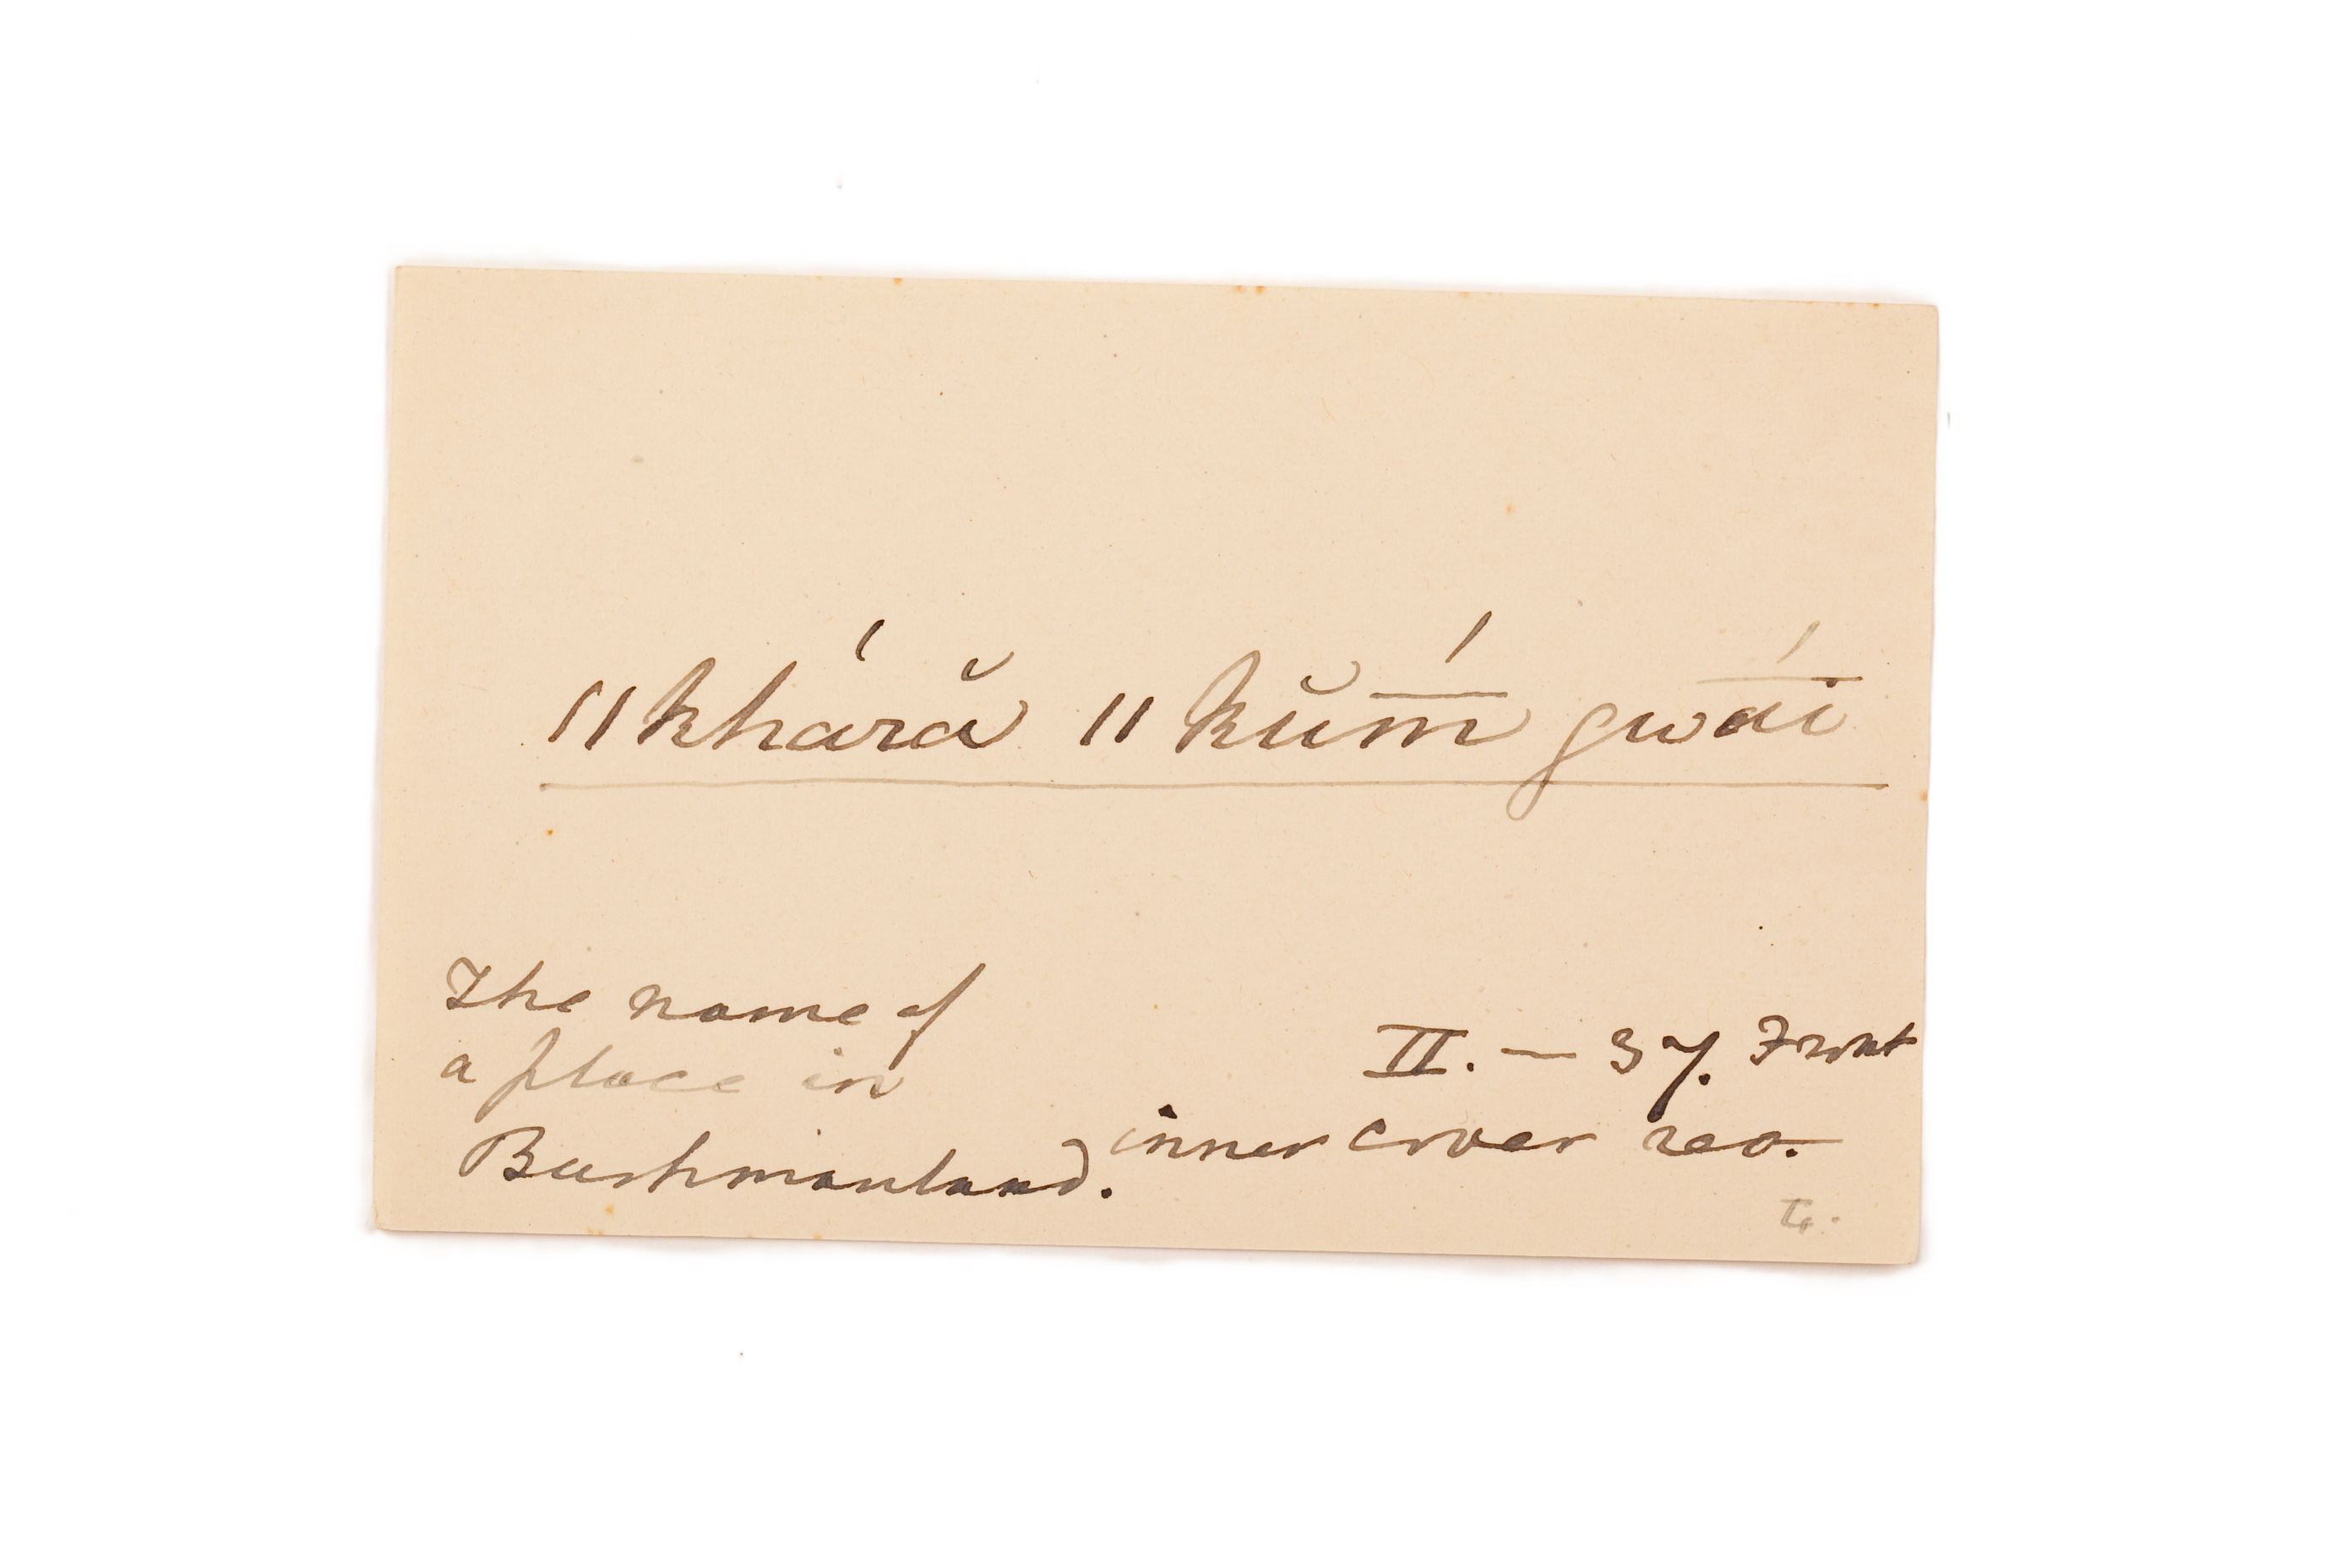 ǁkhárā̆ ǁkŭm̄́ gwā́i
The name of
a place in
Bushmanland.
II. — 37. Front
inner cover rev.